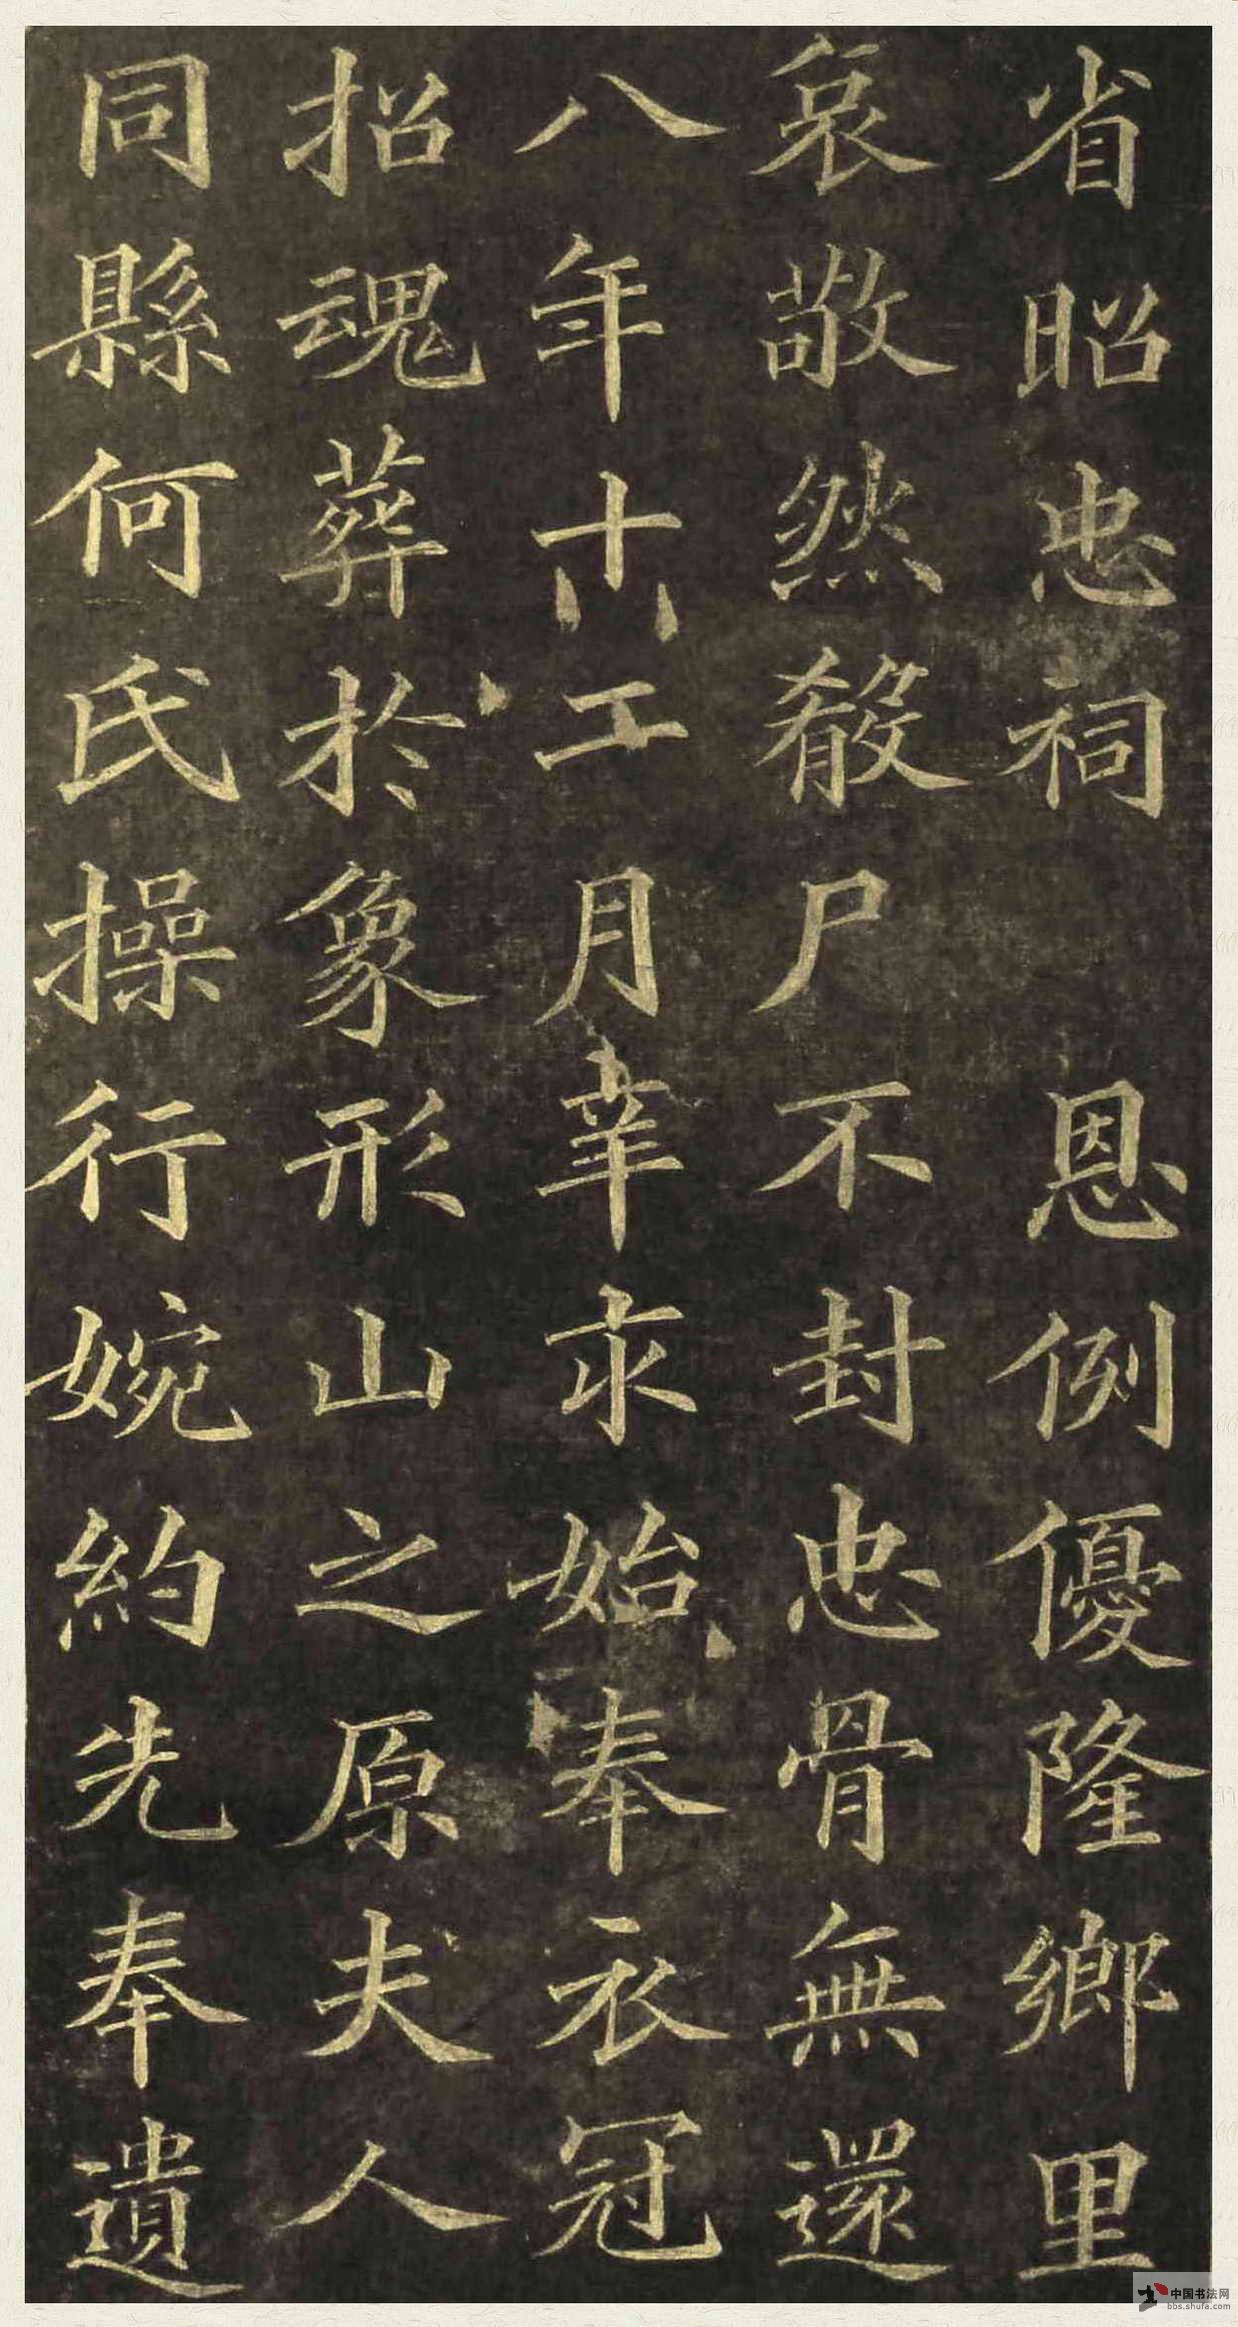 省昭忠祠　恩例優隆鄉里
哀敬然殽尸不封忠骨無還
八年十二月辛未始奉衣冠
招魂葬於象形山之原夫人
同縣何氏操行婉約先奉遺
中国书法网
bbs.shufa.com